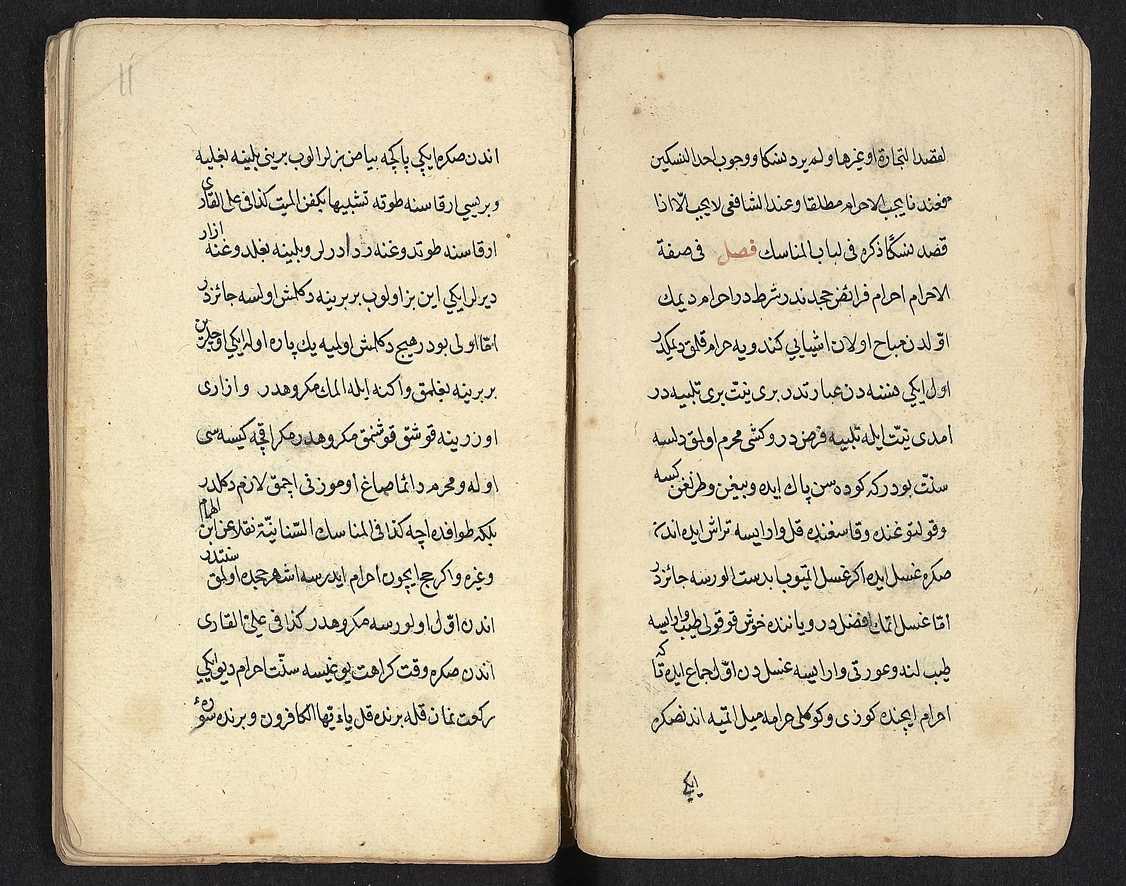 لقصد التجارة او غيرها ولم يرد نسكا ووجوب احد النسكين
فعندنا يجب الاحرام مطلقا وعند الشافعى لا يجب الّا اذا
قصد نسكًا ذكره فى لباب المناسك فصل فى صفة
الاحرام احرام فرائض حجدندر شرطدر احرام ديمك
اوّلدن مباح اولان اشيايي كندويه حرام قلمق ديمكدر
اول ايكي نسنه دن عبارتدر برى نيّت برى تلبيه در
امدى نيّت ايله تلبيه فرضدر وكشى محرم اولمق دلسه
سنّت بودركه كوده سن پاك ايده وبيغن وطرنغن كسه
وقولتوغنده وقاسغنده قل وار ايسه تراش ايده اندن
صكره غسل ايده اكر غسل ايتميوب ابدست الورسه جائزدر
امّا غسل اتمك افضلدر وياننده خوش قوقولى طيب وار ايسه
طيب لنه وعورتى وار ايسه غسلدن اوّل جماع ايده تا كه
احرام ايچنده كوزى وكوكلى حرامه ميل اتميه اندنصكره
ايكى
11
اندن صكره ايكي پاكچه بياض بزلر الوب بريني بلينه بغليه
وبريسي ارقاسنه طوته تشبيها بكفن الميت كذا فى على القارى
ارقاسنه طوتدوغنه ردا درلر وبلينه بغلدوغنه ازار
ديرلر ايكي اين بز اولوب بربرينه دكلمش اولسه جائزدر
امّا اولى بودر هيچ دكلمش اولميه يك پاره اوله ايكي اوجلرين
بربرينه بغلمق واكنه ايله المك مكروهدر وازارى
اوزرينه قوشق قوشنمق مكروهدر مكر اقچه كيسه سى
اوله ومحرم دائما صاغ اوموزنى اچمق لازم دكلدر
بلكه طوافده اچه كذا فى المناسك السّنانيّة نقلا عن ابن الهمام
وغيره واكر حج ايچون احرام ايدرسه اشهر حجده اولمق سنتدر
اندن اوّل اولورسه مكروهدر كذا فى علىّ القارى
اندن صكره وقت كراهت يوغيسه سنّت احرام ديو ايكي
ركعت نماز قله برنده قل ياءيّها الكافرون وبرنده سورهٔ